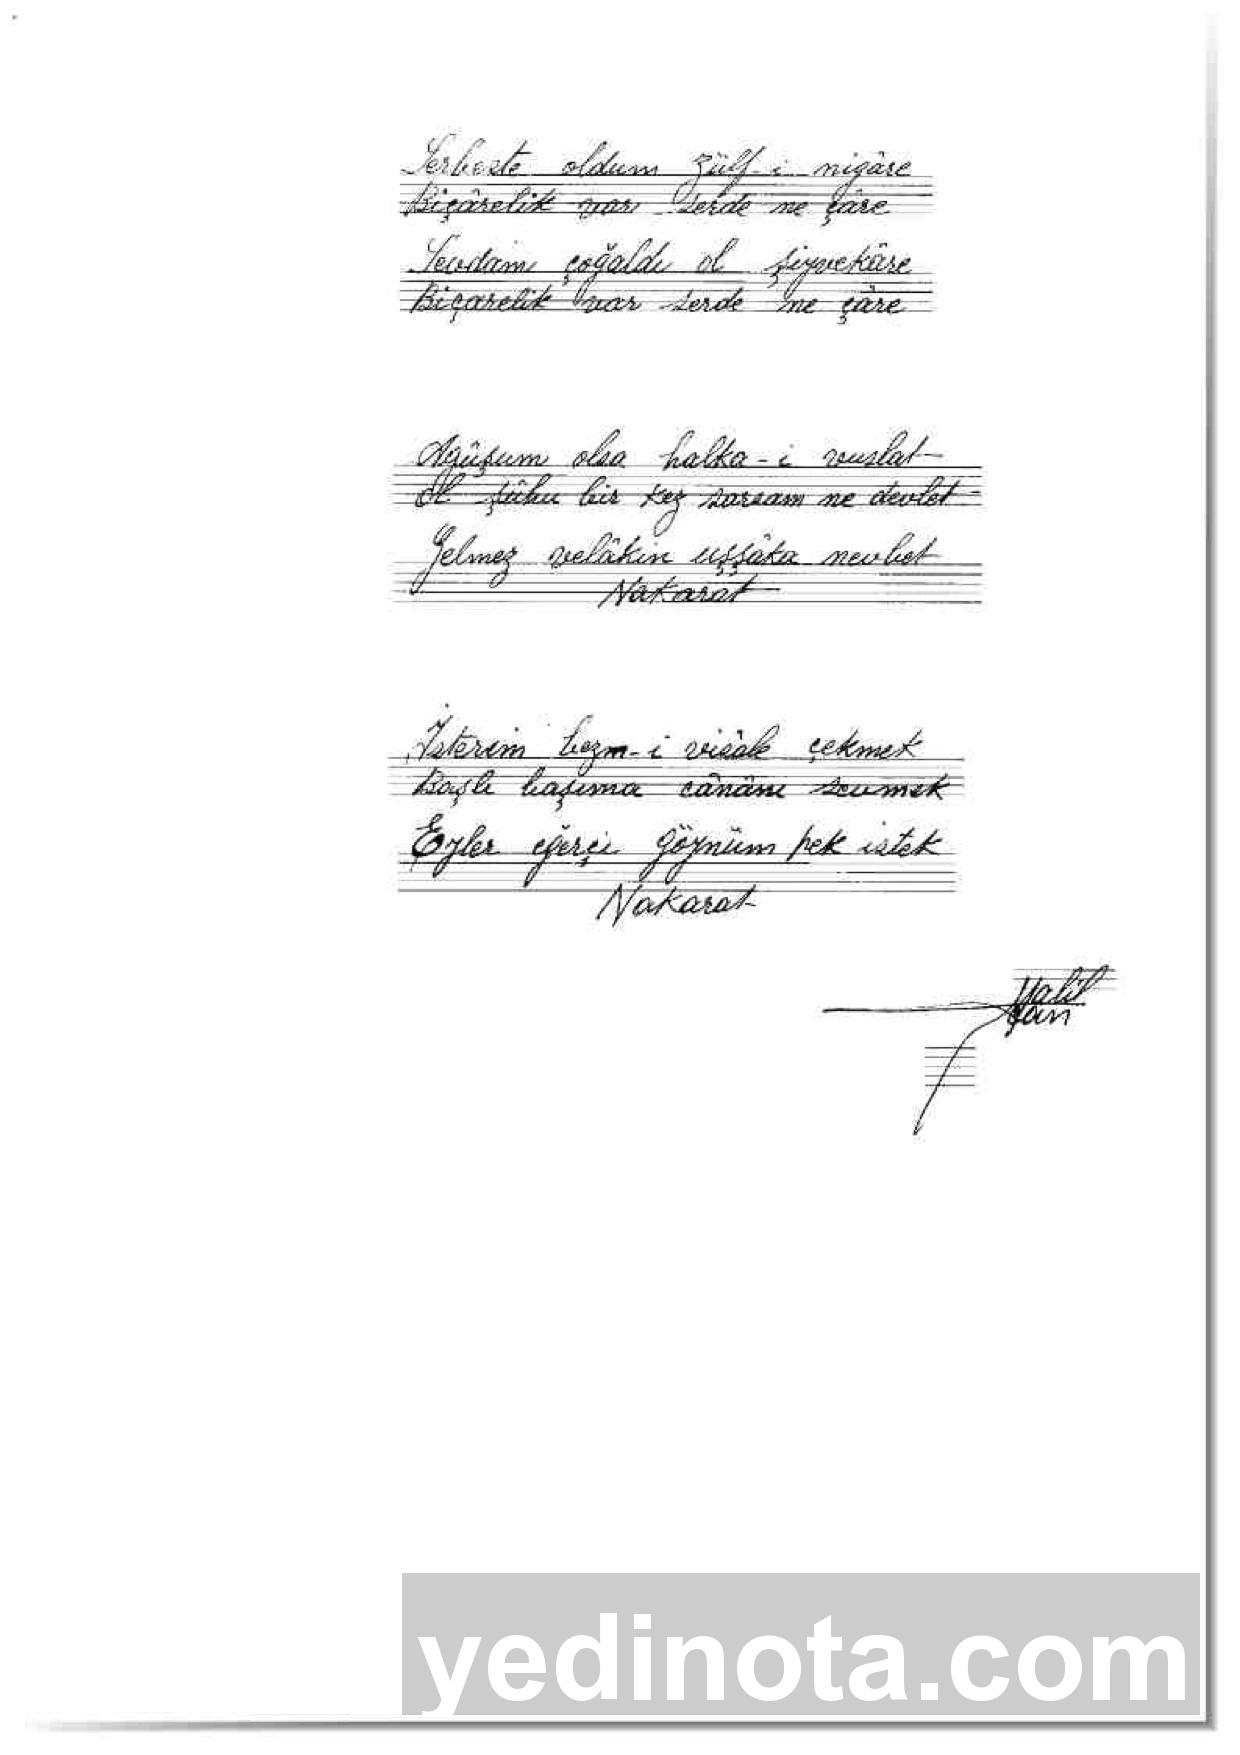 Serbeste oldum zülf-i nigâre
Biçârelik var serde ne çâre
Sevdam çoğaldı ol şiyvekâre
Biçarelik var serde ne çâre
Ağûşum olsa halka-i vuslat
Ol şûhu bir kez sarsam ne devlet
Gelmez velâkin uşşâka nevbet
Nakarat
İsterim bezm-i visâle çekmek
Başlı başıma cânânı sevmek
Eyler eğerçi göynüm pek istek
Nakarat
Halil
Can
yedinota.com